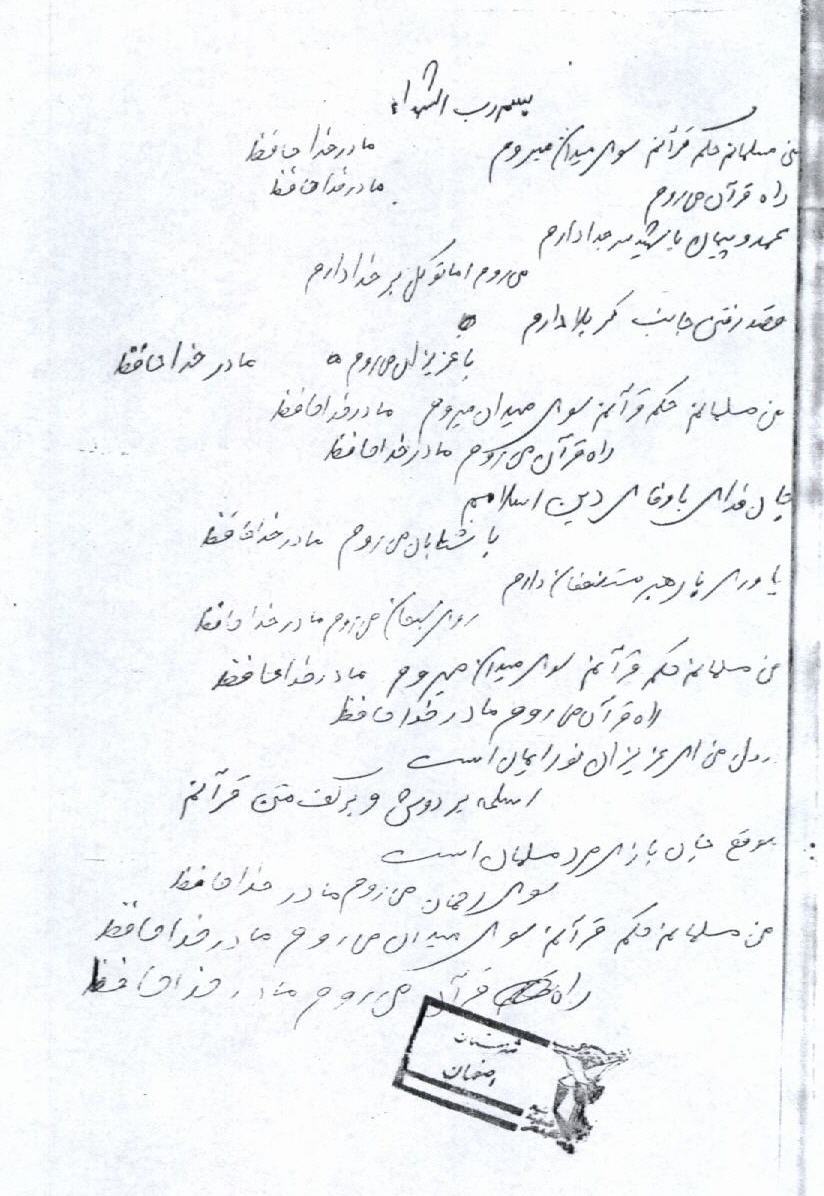 بسم رب الشهداء
من مسلمانم حکم قرآنم سوی میدان میروم مادر خدا حافظ
راه قرآن می روم مادر خدا حافظ
عهد و پیمان با شهید سر جدا دارم
می روم اما توکل بر خدا دارم
قصد رفتن جانب کربلا دارم
با عزیزان می روم مادر خدا حافظ
من مسلمانم حکم قرآنم سوی میدان میروم مادر خدا حافظ
راه قرآن می روم مادر خدا حافظ
جان فدای با وفای دین اسلامیم
با شتابان می روم مادر خدا حافظ
یاوری با رهبر مستضعفان دارم
روی سبحان می روم مادر خدا حافظ
من مسلمانم حکم قرآنم سوی میدان میروم مادر خدا حافظ
راه قرآن می روم مادر خدا حافظ
دل من ای عزیزان نور ایمان است
اسلحه بر دوش و بر کف متن قرآنم
موقع جان بازی مرد مسلمان است
سوی رحمان می روم مادر خدا حافظ
من مسلمانم حکم قرآنم سوی میدان می روم مادر خدا حافظ
راه قرآن می روم مادر خدا حافظ
شهرستان
اصفهان